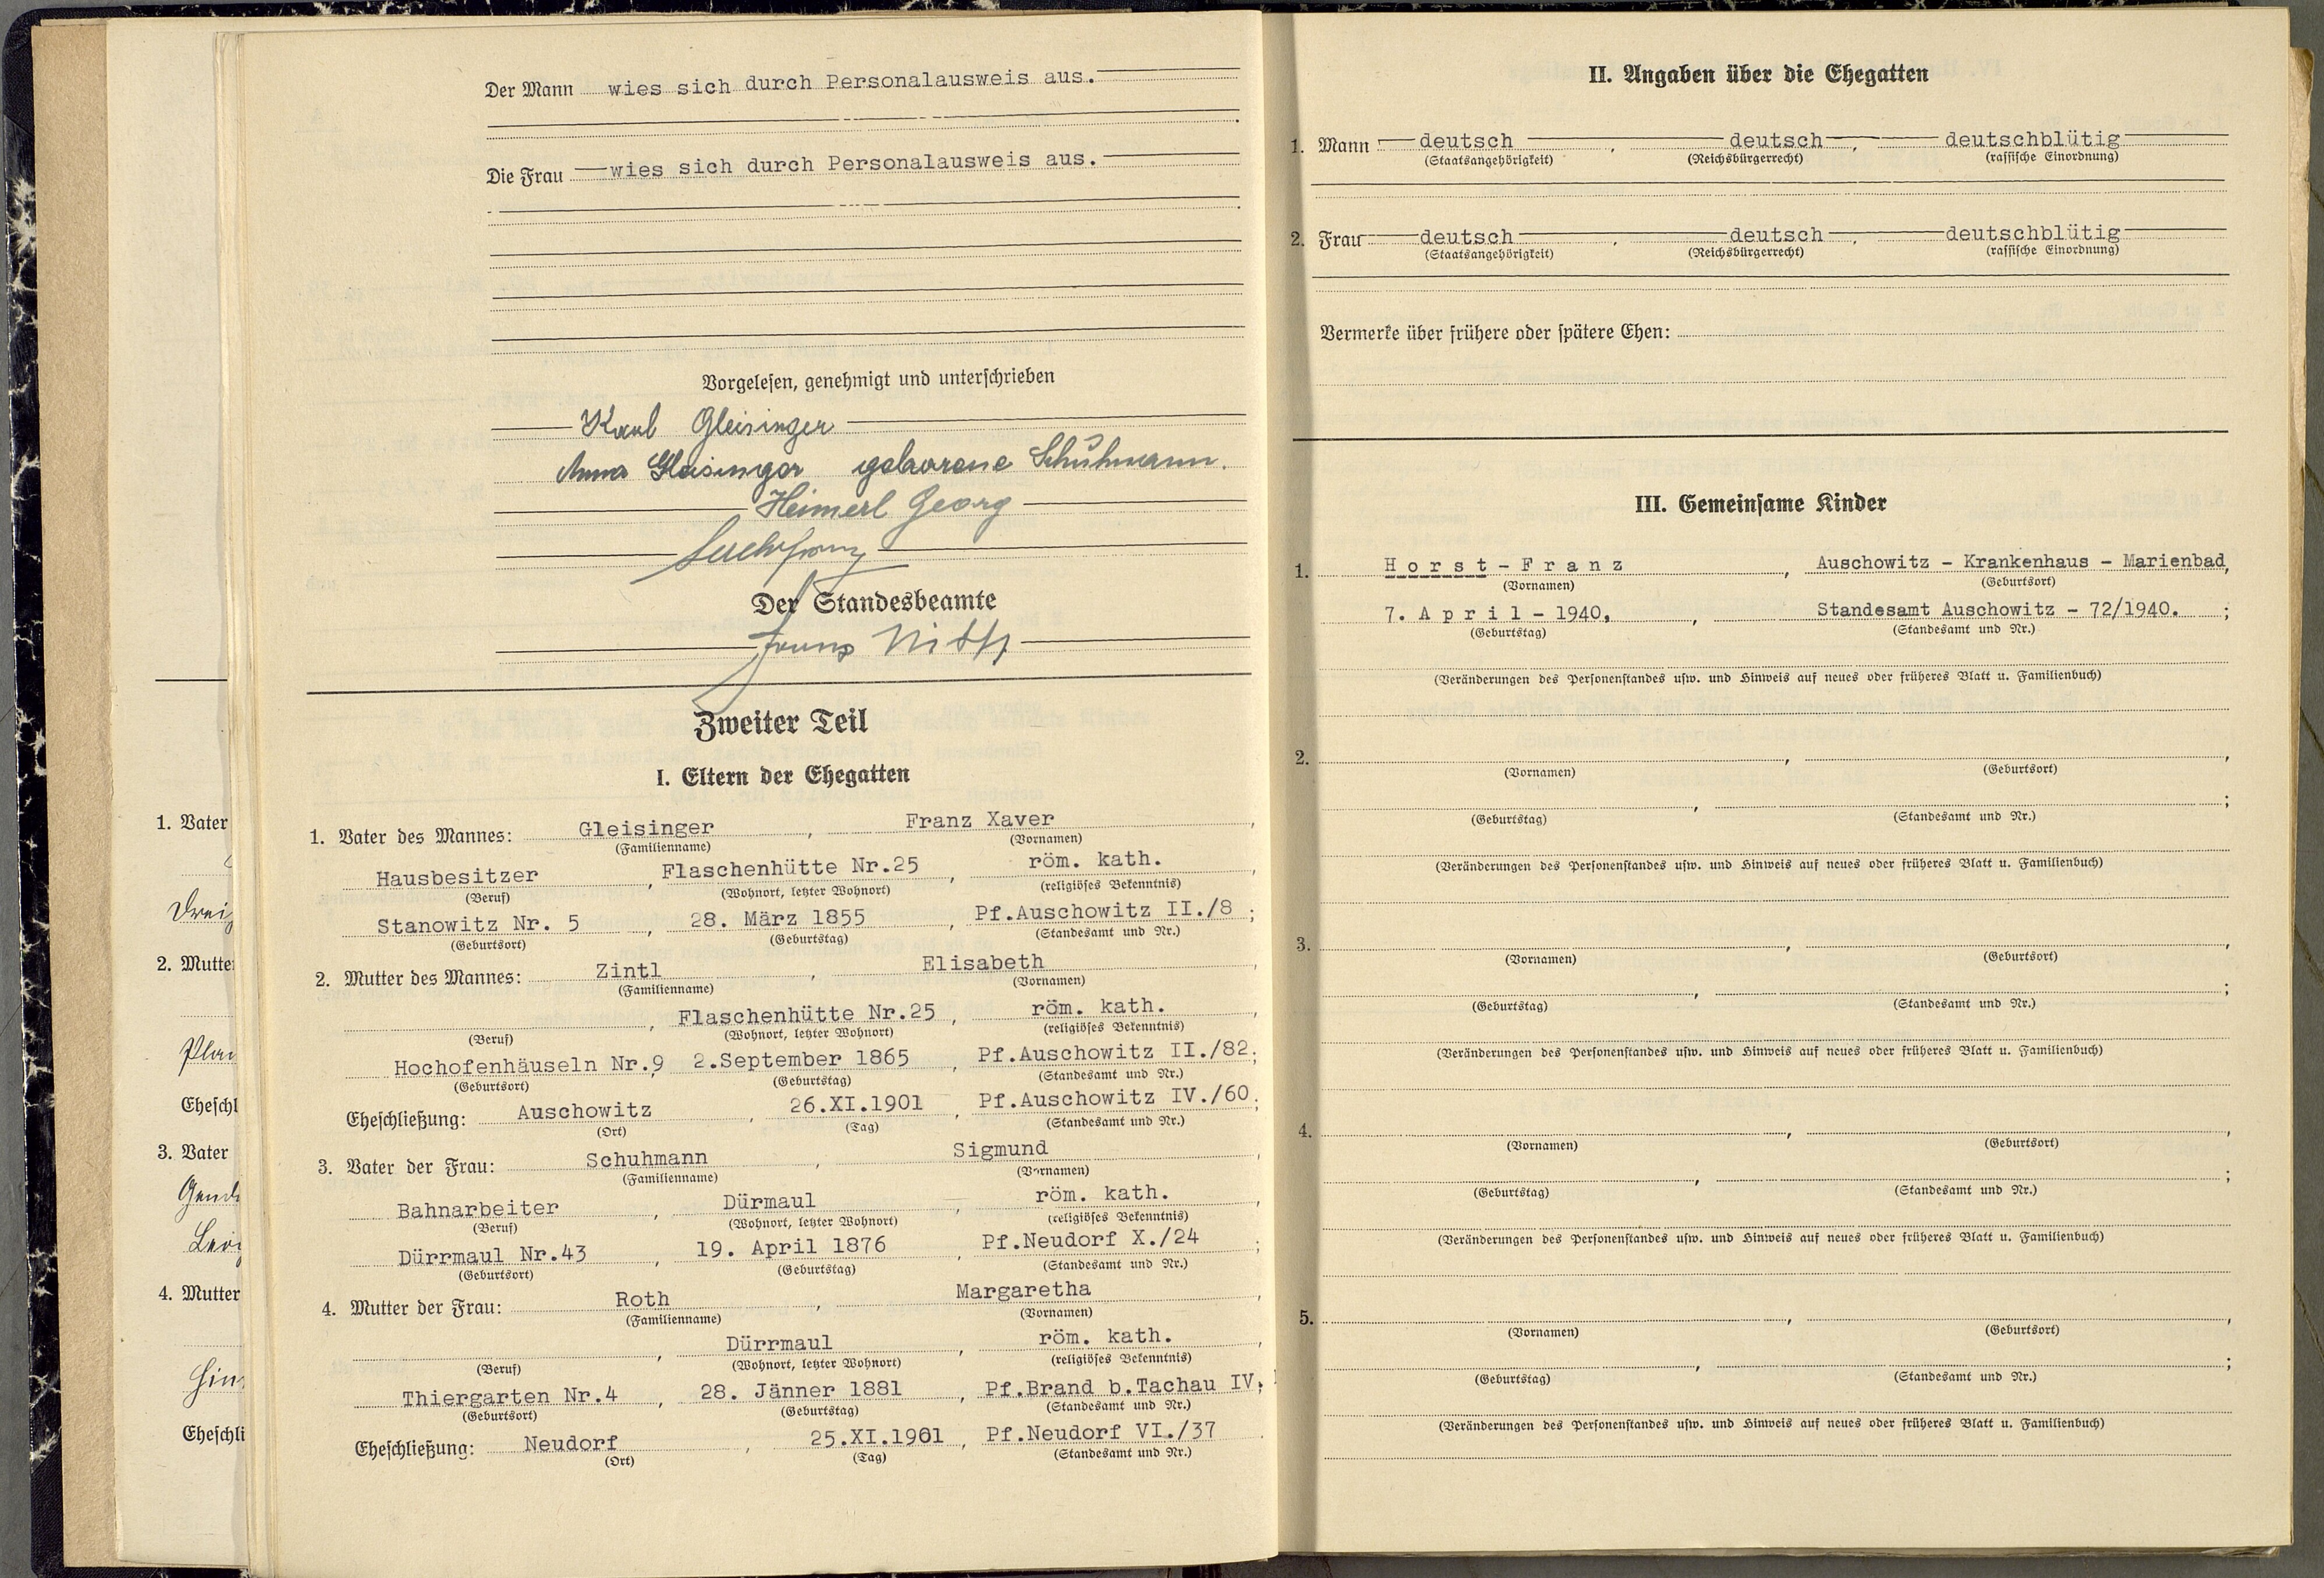 Der Mann wies sich durch Personalausweis aus.
Die Frau wies sich durch Personalausweis aus.
Vorgelesen, genehmigt und unterschrieben
Karl Gleisinger
Anna Gleisinger geborene Schuhmann.
Heimerl Georg
Der Standesbeamte
Franz
Zweiter Teil
I. Eltern der Ehegatten
1. Vater des Mannes: Gleisinger, Franz Xaver,
(Familienname) (Vornamen)
Hausbesitzer, Flaschenhütte Nr.25, röm. kath.,
(Beruf) (Wohnort, letzter Wohnort) (religiöses Bekenntnis)
Stanowitz Nr. 5, 28. März 1855, Pf.Auschowitz II./8;
(Geburtsort) (Geburtstag) (Standesamt und Nr.)
2. Mutter des Mannes: Zintl, Elisabeth,
(Familienname) (Vornamen)
, Flaschenhütte Nr.25, röm. kath.,
(Beruf) (Wohnort, letzter Wohnort) (religiöses Bekenntnis)
Hochofenhäuseln Nr.9, 2.September 1865, Pf.Auschowitz II./82;
(Geburtsort) (Geburtstag) (Standesamt und Nr.)
Eheschließung: Auschowitz, 26.XI.1901, Pf.Auschowitz IV./60;
(Ort) (Tag) (Standesamt und Nr.)
3. Vater der Frau: Schuhmann, Sigmund,
(Familienname) (Vornamen)
Bahnarbeiter, Dürmaul, röm. kath.,
(Beruf) (Wohnort, letzter Wohnort) (religiöses Bekenntnis)
Dürrmaul Nr.43, 19. April 1876, Pf.Neudorf X./24;
(Geburtsort) (Geburtstag) (Standesamt und Nr.)
4. Mutter der Frau: Roth, Margaretha,
(Familienname) (Vornamen)
, Dürrmaul, röm. kath.,
(Beruf) (Wohnort, letzter Wohnort) (religiöses Bekenntnis)
Thiergarten Nr.4, 28. Jänner 1881, Pf.Brand b.Tachau IV;
(Geburtsort) (Geburtstag) (Standesamt und Nr.)
Eheschließung: Neudorf, 25.XI.1901, Pf.Neudorf VI./37
(Ort) (Tag) (Standesamt und Nr.)
1. Vater
2. Mutte
Eheschl
3. Vater
4. Mutter
Eheschli
II. Angaben über die Ehegatten
1. Mann deutsch, deutsch, deutschblütig
(Staatsangehörigkeit) (Reichsbürgerrecht) (rassische Einordnung)
2. Frau deutsch, deutsch, deutschblütig
(Staatsangehörigkeit) (Reichsbürgerrecht) (rassische Einordnung)
Vermerke über frühere oder spätere Ehen:
III. Gemeinsame Kinder
1. Horst-Franz, Auschowitz - Krankenhaus - Marienbad,
(Vornamen) (Geburtsort)
7. April - 1940, , Standesamt Auschowitz - 72/1940. ;
(Geburtstag) (Standesamt und Nr.)
(Veränderungen des Personenstandes usw. und Hinweis auf neues oder früheres Blatt u. Familienbuch)
2. , ,
(Vornamen) (Geburtsort)
, ;
(Geburtstag) (Standesamt und Nr.)
(Veränderungen des Personenstandes usw. und Hinweis auf neues oder früheres Blatt u. Familienbuch)
3. , ,
(Vornamen) (Geburtsort)
, ;
(Geburtstag) (Standesamt und Nr.)
(Veränderungen des Personenstandes usw. und Hinweis auf neues oder früheres Blatt u. Familienbuch)
4. , ,
(Vornamen) (Geburtsort)
, ;
(Geburtstag) (Standesamt und Nr.)
(Veränderungen des Personenstandes usw. und Hinweis auf neues oder früheres Blatt u. Familienbuch)
5. , ,
(Vornamen) (Geburtsort)
, ;
(Geburtstag) (Standesamt und Nr.)
(Veränderungen des Personenstandes usw. und Hinweis auf neues oder früheres Blatt u. Familienbuch)